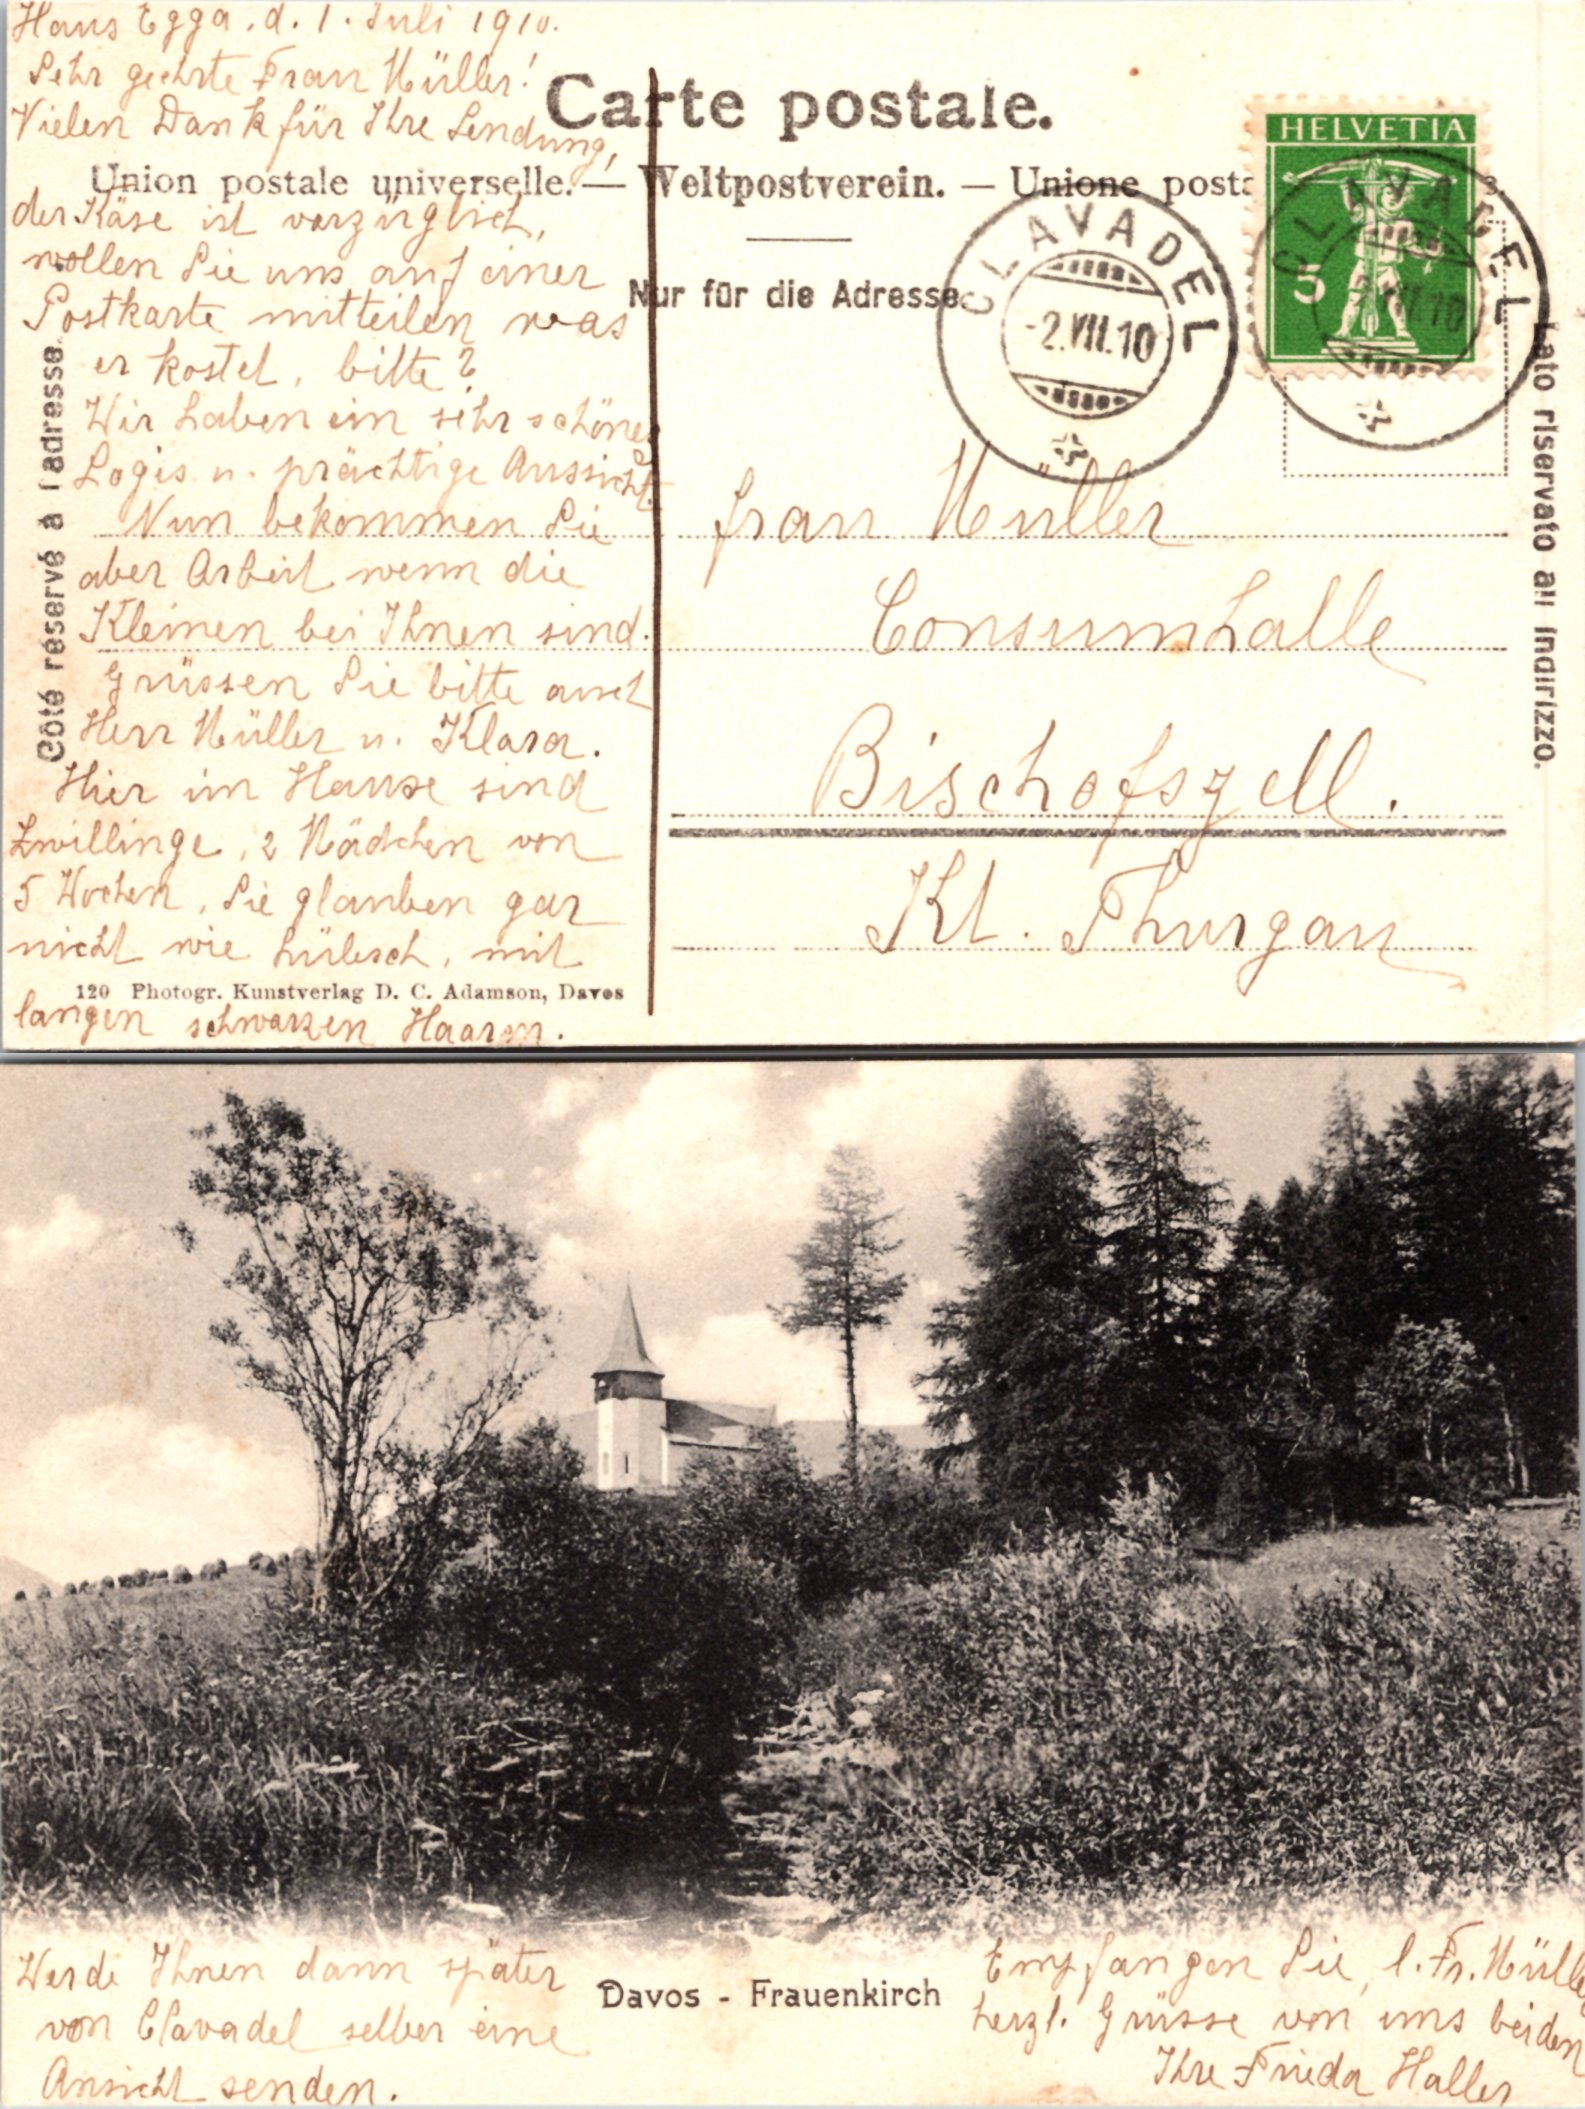 Haus Egga, d. 1. Juli 1910.
Sehr geehrte Frau Müller!
Vielen Dank für Ihre Sendung,
der Käse ist vorzüglich,
wollen Sie uns auf einer
Postkarte mitteilen was
er kostet, bitte?
Wir haben ein sehr schönes
Logis u. prächtige Aussicht.
Nun bekommen Sie
aber Arbeit wenn die
Kleinen bei Ihnen sind.
Grüssen Sie bitte auch
Herr Müller u. Klara.
Hier im Hause sind
Zwillinge, 2 Mädchen von
5 Wochen, Sie glauben gar
nicht wie hübsch, mit
langen schwarzen Haaren.
120 Photogr. Kunstverlag D. C. Adamson, Davos
Côté réservé à l'adresse.
Carte postale.
Union postale universelle. — Weltpostverein. — Unione posta
s.
Nur für die Adresse
Lato riservato all indirizzo.
HELVETIA
5
CLAVADEL
-2.VII.10
CLAVADEL
VII.10
Frau Müller
Consumhalle
Bischofszell.
Kt. Thurgau
Werde Ihnen dann später
von Clavadel selber eine
Ansicht senden.
Davos - Frauenkirch
Empfangen Sie, l. Fr. Müller
herzl. Grüsse von uns beiden
Ihre Frieda Haller